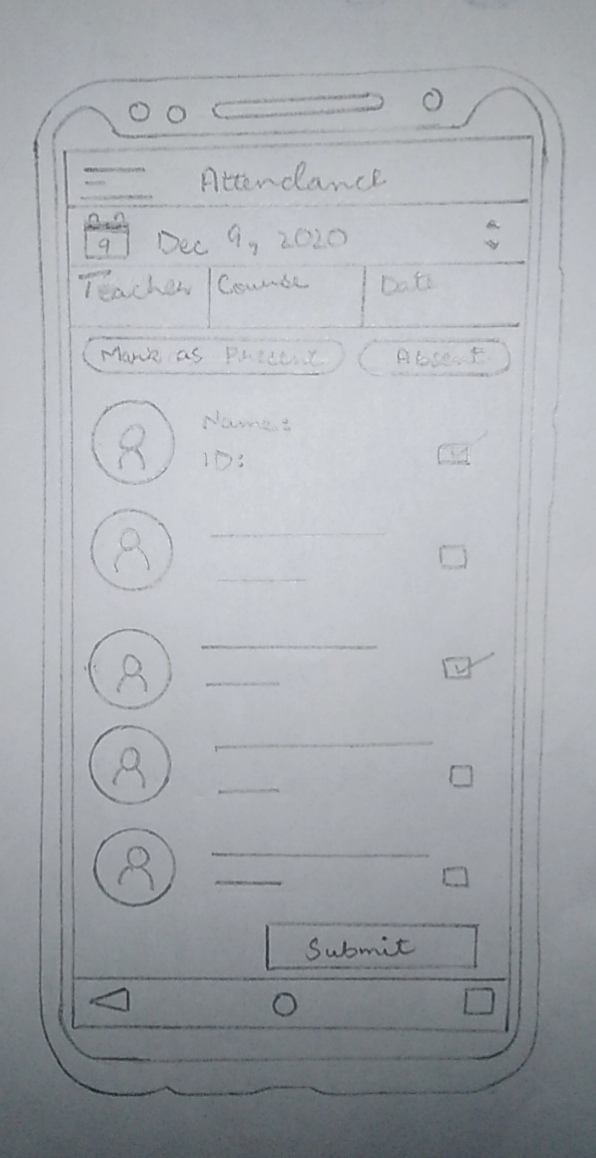 Attendance
9 Dec 9, 2020
Teacher Course Date
Mark as Present Absent
Name:
ID:
Submit